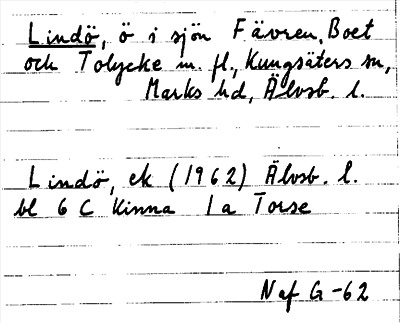 Lindö, ö i sjön Fävren, Boet
och Tolycke m. fl., Kungsäters sn,
Marks hd, Älvsb. l.
Lindö, ek (1962) Älvsb. l.
bl 6 C Kinna 1a Torse
Naf G-62